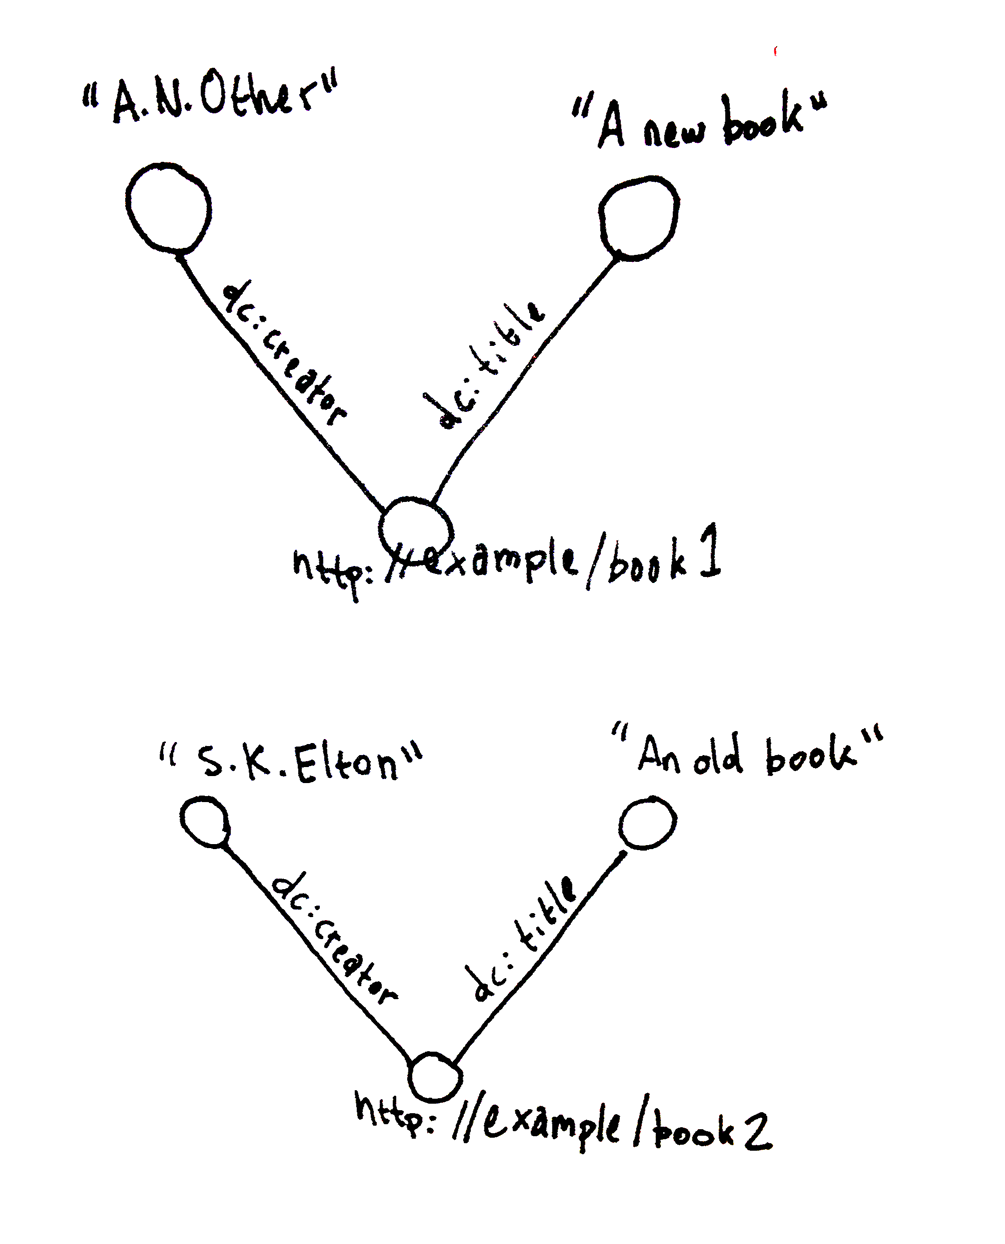 "A.N.Other"
"A new book"
dc:creator
dc:title
http://example/book1
"S.K.Elton"
"An old book"
dc:creator
dc:title
http://example/book2